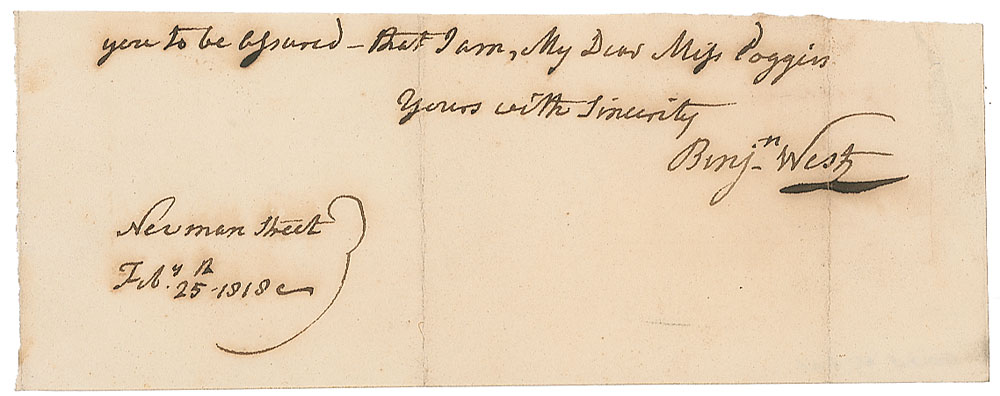 you to be assured – that I am, My Dear Miss Poggin
Yours with Sincerity
Benjn. West
Newman Street
Feby. 25th 1818